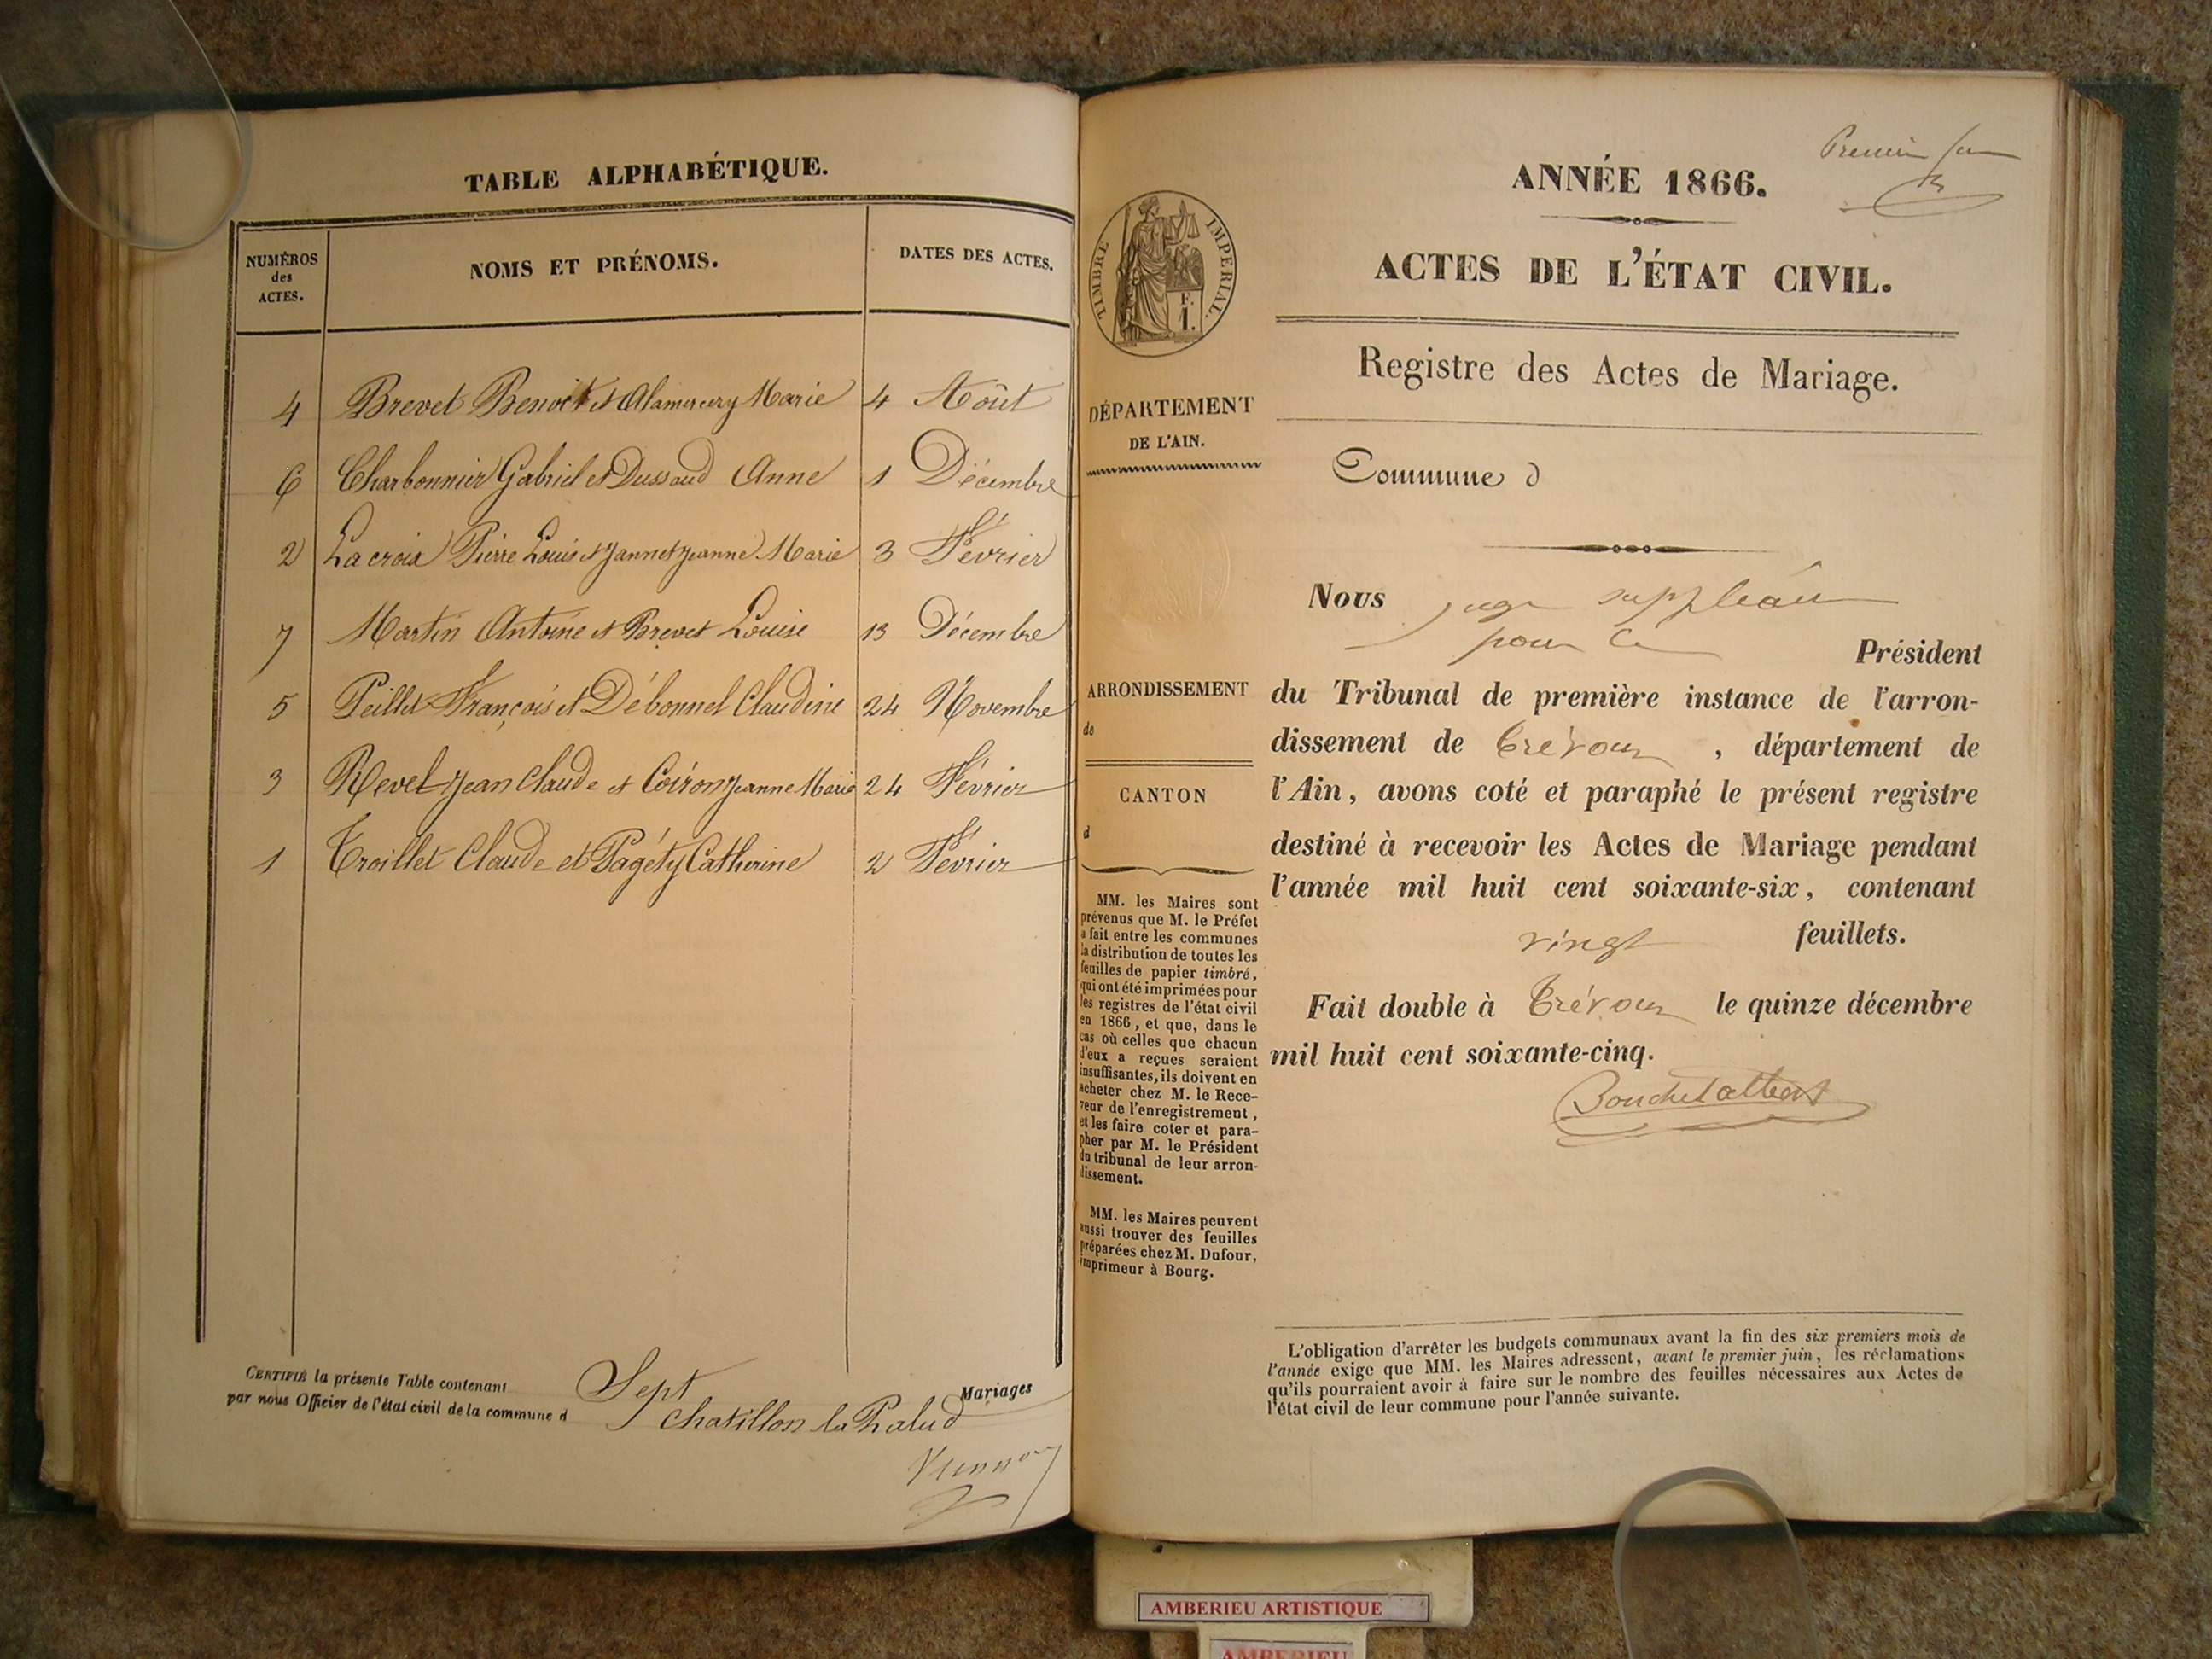 TABLE ALPHABÉTIQUE.
NUMÉROS
des
ACTES.
NOMS ET PRÉNOMS.
DATES DES ACTES.
4 Brevet Benoit et Alamercery Marie 4 Août
6 Charbonnier Gabriel et Dussaud Anne 1 Décembre
2 Lacroix Pierre Louis et Jannet Jeanne Marie 3 Février
7 Martin Antoine et Brevet Louise 13 Décembre
5 Peillet François et Débonnel Claudine 24 Novembre
3 Revel Jean Claude et Coiron Jeanne Marie 24 Février
1 Troillet Claude et Pagéty Catherine 2 Février
CERTIFIÉ la présente Table contenant Sept Mariages
par nous Officier de l'état civil de la commune d chatillon la Palud
TIMBRE IMPERIAL.
F.
1.
DÉPARTEMENT
DE L'AIN.
ARRONDISSEMENT
de
CANTON
d
MM. les Maires sont
prévenus que M. le Préfet
a fait entre les communes
la distribution de toutes les
feuilles de papier timbré,
qui ont été imprimées pour
les registres de l'état civil
en 1866, et que, dans le
cas où celles que chacun
d'eux a reçues seraient
insuffisantes, ils doivent en
acheter chez M. le Rece-
veur de l'enregistrement,
et les faire coter et para-
pher par M. le Président
du tribunal de leur arron-
dissement.
MM. les Maires peuvent
aussi trouver des feuilles
préparées chez M. Dufour,
imprimeur à Bourg.
Premier
ANNÉE 1866.
ACTES DE L'ÉTAT CIVIL.
Registre des Actes de Mariage.
Commune d
Nous juge suppléant
pour le Président
du Tribunal de première instance de l'arron-
dissement de Trévoux, département de
l'Ain, avons coté et paraphé le présent registre
destiné à recevoir les Actes de Mariage pendant
l'année mil huit cent soixante-six, contenant
vingt feuillets.
Fait double à Trévoux le quinze décembre
mil huit cent soixante-cinq.
L'obligation d'arrêter les budgets communaux avant la fin des six premiers mois de
l'année exige que MM. les Maires adressent, avant le premier juin, les réclamations
qu'ils pourraient avoir à faire sur le nombre des feuilles nécessaires aux Actes de
l'état civil de leur commune pour l'année suivante.
AMBERIEU ARTISTIQUE
AMBERIEU